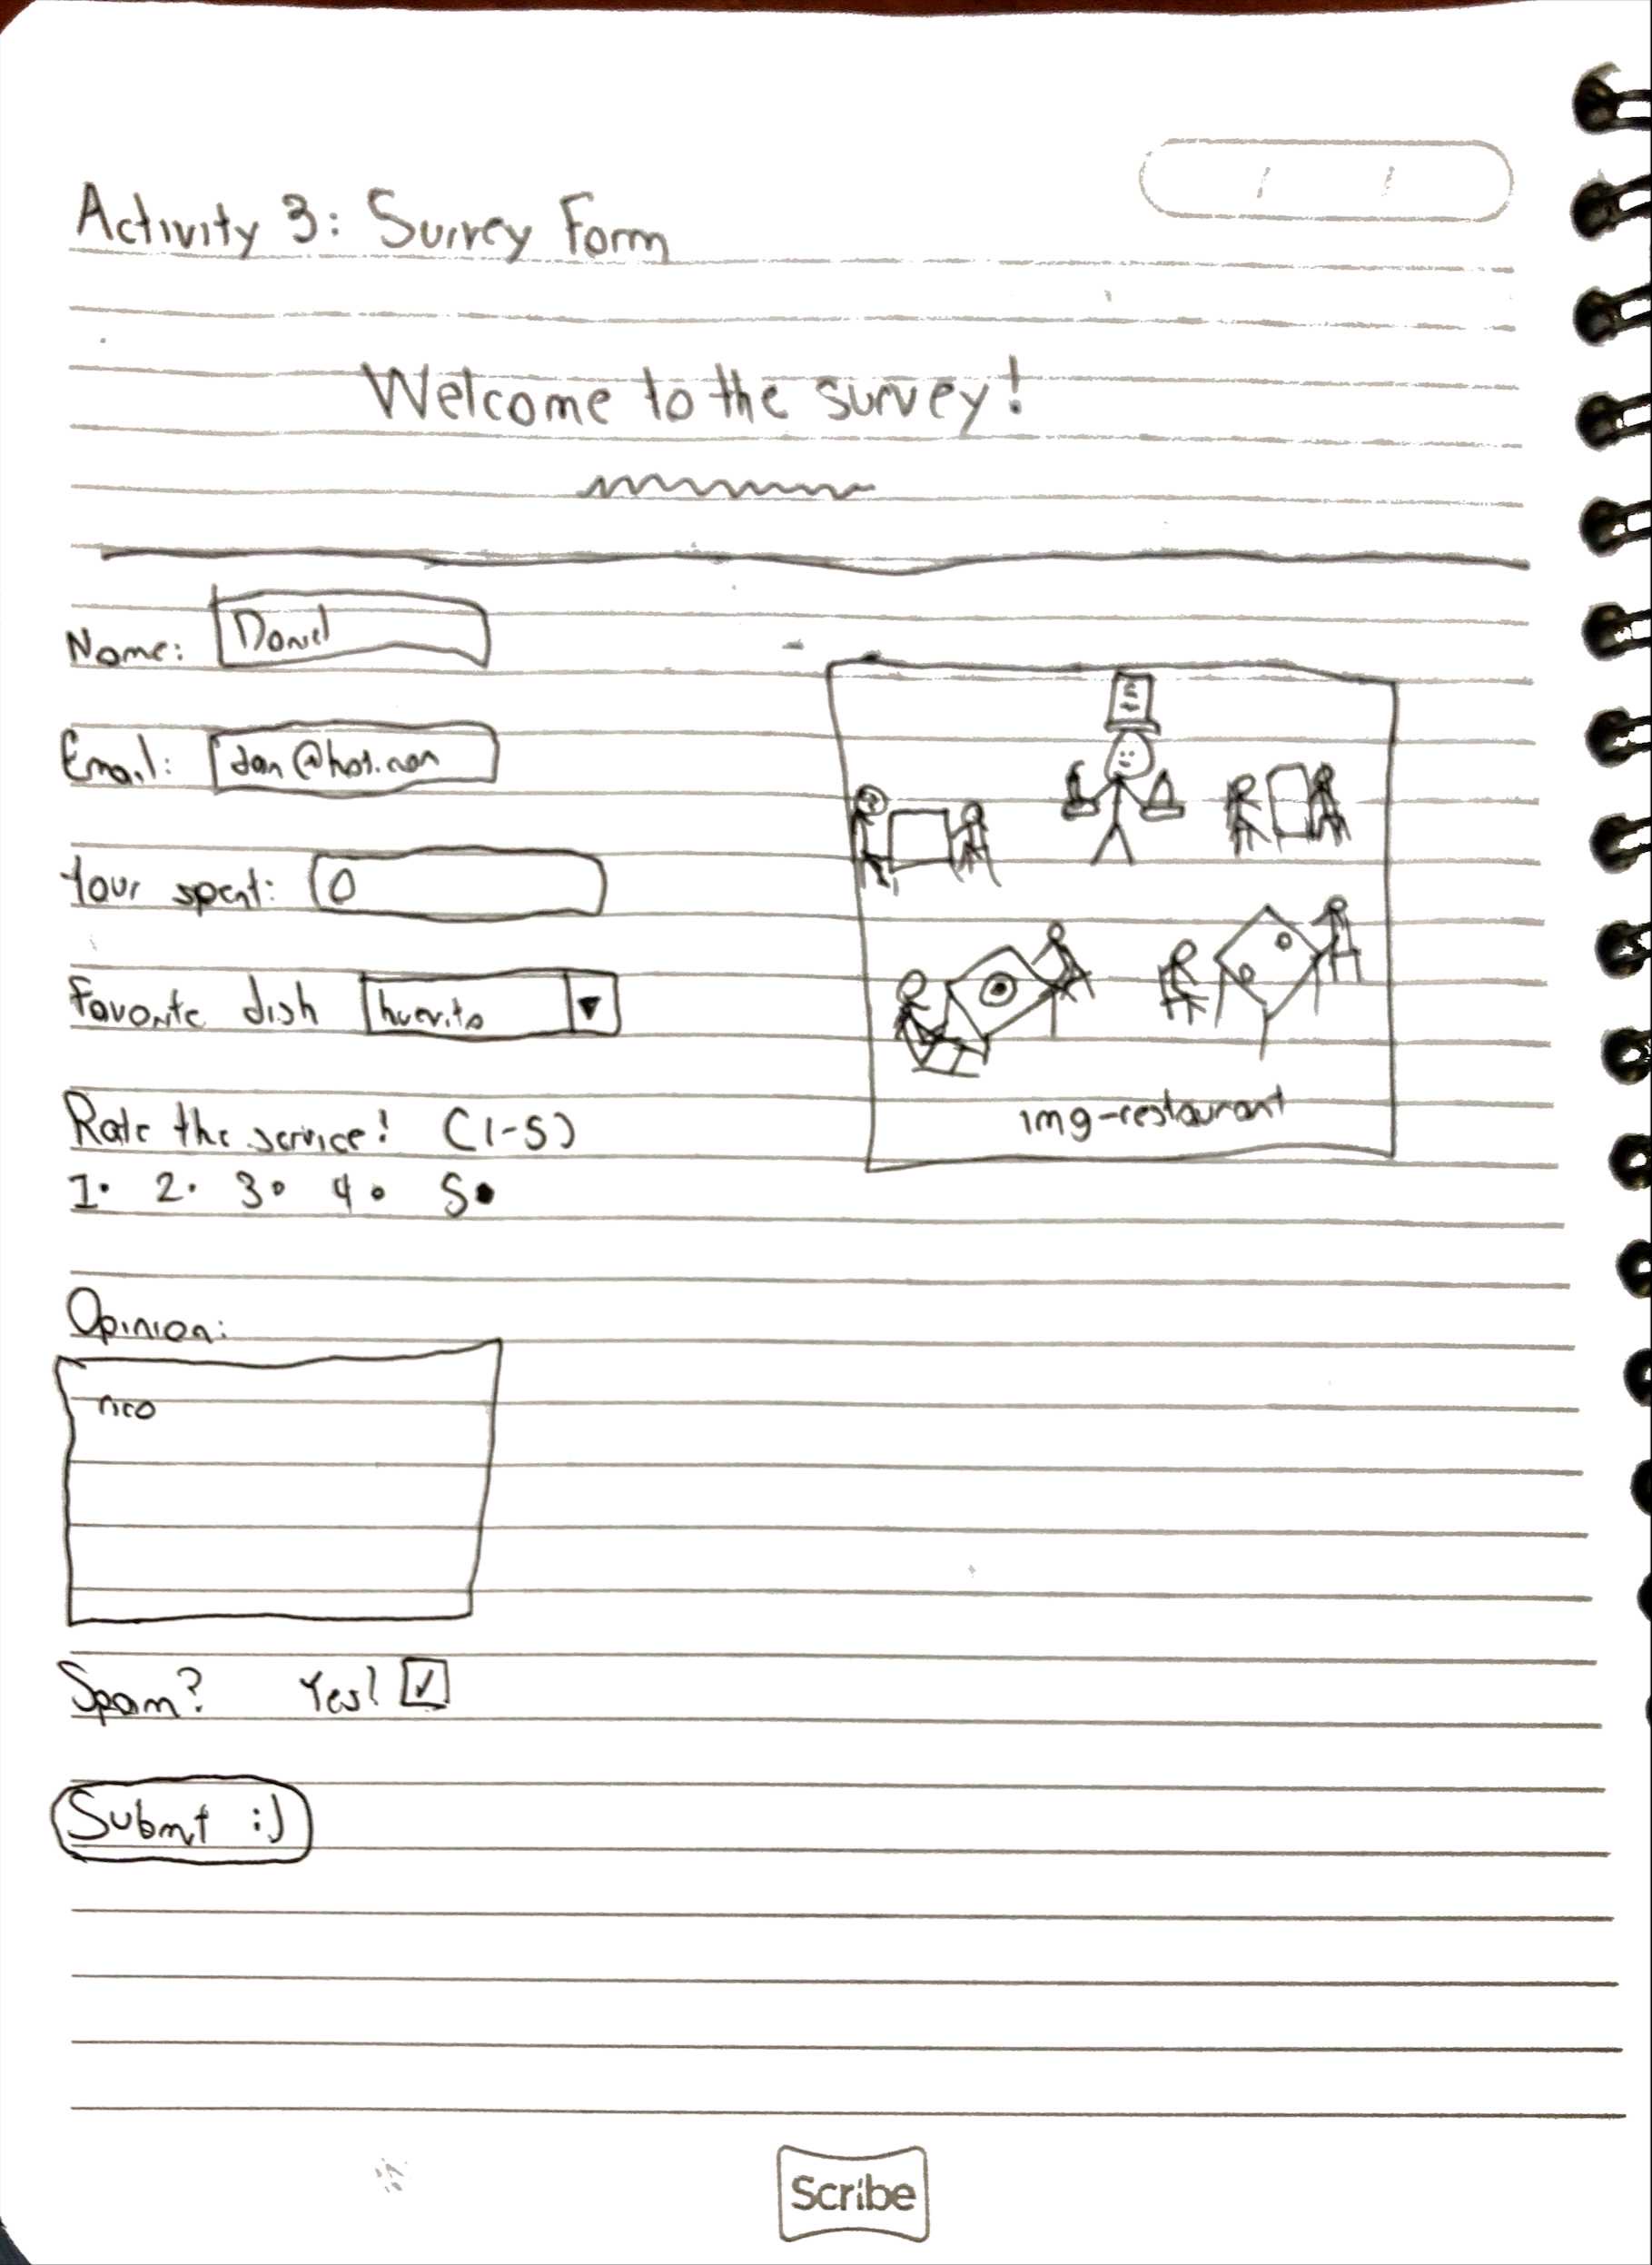 Activity 3: Survey Form
Welcome to the survey!
Name: Daniel
Email: dan@hot.non
Your spent: 0
Favorite dish huevito
Rate the service! (1-5)
1. 2. 3. 4. 5.
img-restaurant
Opinion:
rico
Spam? Yes! ✓
Submit :)
Scribe